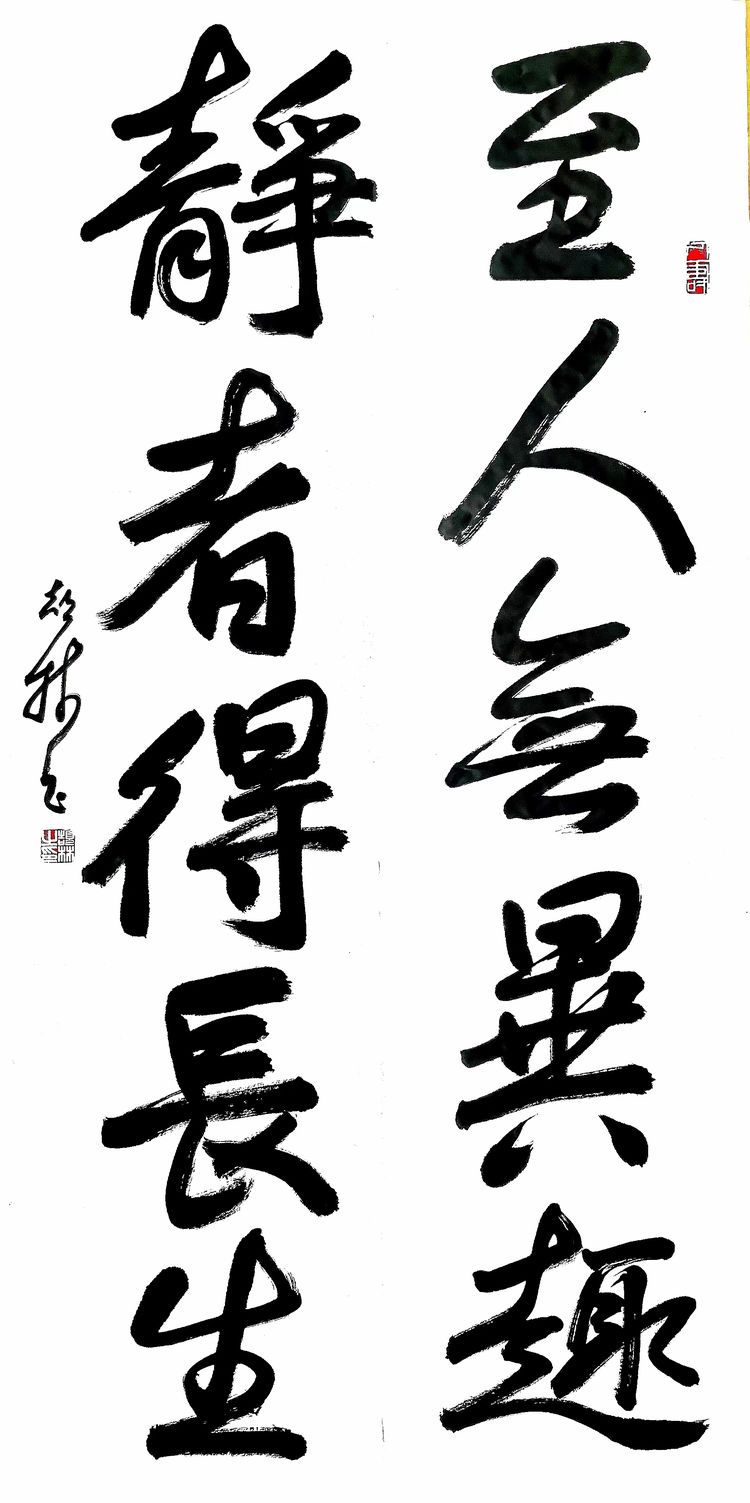 至人無異趣
靜者得長生